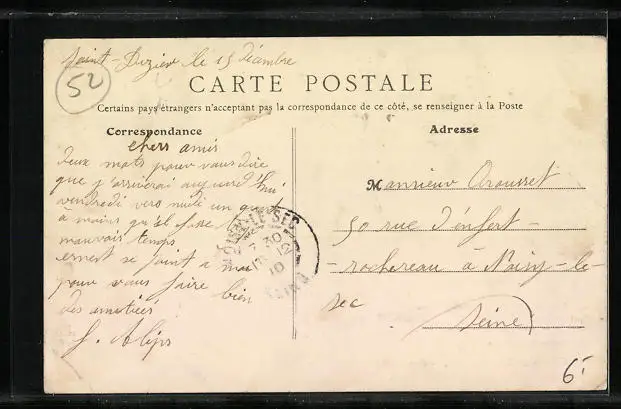 Saint-Dizier le 15 décembre
52
CARTE POSTALE
Certains pays étrangers n'acceptant pas la correspondance de ce côté, se renseigner à la Poste
Correspondance
Adresse
chers amis
deux mots pour vous dire
que j'arriverai aujourd'hui
vendredi vers midi un quart
a moins qu'el fasse
mauvais temps
ernest se joint a moi
pour vous faire bien
des amitiés
Monsieur
50 rue d'enfert
rochereau à Noisy-le-
sec
Seine
NOISY-LE-SEC
7 30
17 - 12
10
SEINE
6